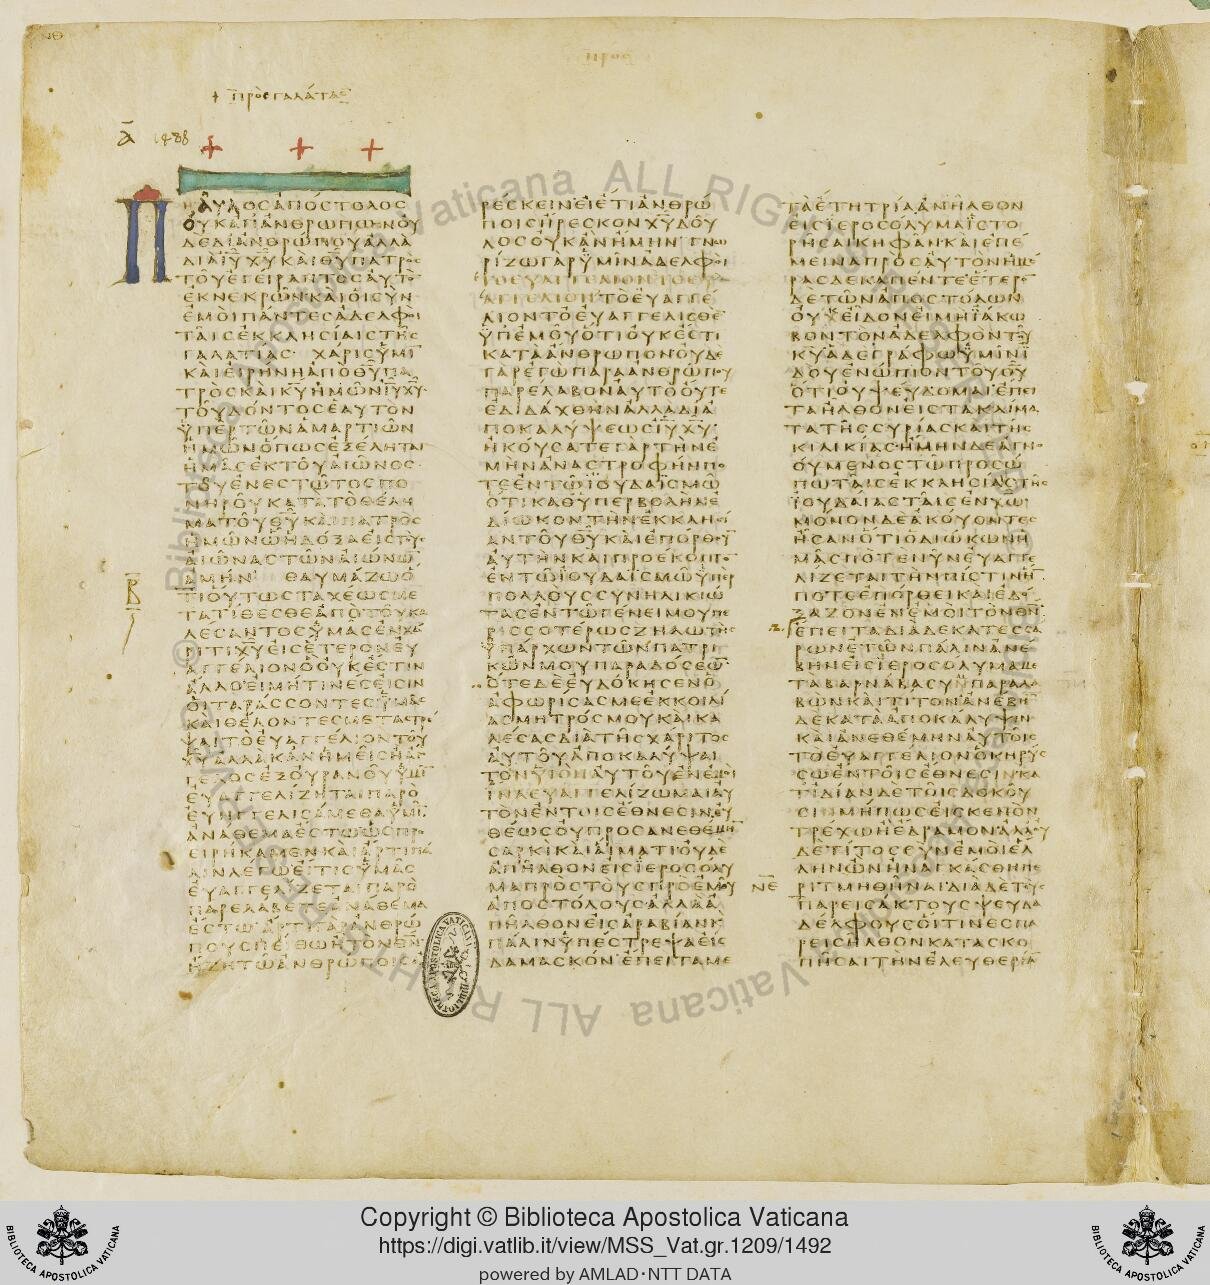 προς γαλατας
Α 1488
ΠΑΥΛΟϹΑΠΟϹΤΟΛΟϹ
ΟΥΚΑΠΑΝΘΡΩΠΩΝΟΥ
ΔΕΔΙΑΝΘΡΩΠΟΥΑΛΛΑ
ΔΙΑΙΥΧΥΚΑΙΘΥΠΑΤΡΟϹ
ΤΟΥΕΓΕΙΡΑΝΤΟϹΑΥΤΟ
ΕΚΝΕΚΡΩΝΚΑΙΟΙϹΥΝ
ΕΜΟΙΠΑΝΤΕϹΑΔΕΛΦΟΙ
ΤΑΙϹΕΚΚΛΗϹΙΑΙϹΤΗϹ
ΓΑΛΑΤΙΑϹ ΧΑΡΙϹΥΜΙ
ΚΑΙΕΙΡΗΝΗΑΠΟΘΥΠΑ
ΤΡΟϹΚΑΙΚΥΗΜΩΝΙΥΧΥ
ΤΟΥΔΟΝΤΟϹΕΑΥΤΟΝ
ΥΠΕΡΤΩΝΑΜΑΡΤΙΩΝ
ΗΜΩΝΟΠΩϹΕΞΕΛΗΤΑΙ
ΗΜΑϹΕΚΤΟΥΑΙΩΝΟϹ
ΤΟΥΕΝΕϹΤΩΤΟϹΠΟ
ΝΗΡΟΥΚΑΤΑΤΟΘΕΛΗ
ΜΑΤΟΥΘΥΚΑΙΠΑΤΡΟϹ
ΗΜΩΝΩΗΔΟΞΑΕΙϹΤΟΥϹ
ΑΙΩΝΑϹΤΩΝΑΙΩΝΩ
ΑΜΗΝ ΘΑΥΜΑΖΩΟ
Β
ΤΙΟΥΤΩϹΤΑΧΕΩϹΜΕ
ΤΑΤΙΘΕϹΘΕΑΠΟΤΟΥΚΑ
ΛΕϹΑΝΤΟϹΥΜΑϹΕΝΧΑ
ΡΙΤΙΧΥΕΙϹΕΤΕΡΟΝΕΥ
ΑΓΓΕΛΙΟΝΟΟΥΚΕϹΤΙΝ
ΑΛΛΟΕΙΜΗΤΙΝΕϹΕΙϹΙΝ
ΟΙΤΑΡΑϹϹΟΝΤΕϹΥΜΑϹ
ΚΑΙΘΕΛΟΝΤΕϹΜΕΤΑϹΤΡΕ
ΨΑΙΤΟΕΥΑΓΓΕΛΙΟΝΤΟΥ
ΧΥΑΛΛΑΚΑΝΗΜΕΙϹΗΑΓ
ΓΕΛΟϹΕΞΟΥΡΑΝΟΥΥΜΙ
ΕΥΑΓΓΕΛΙΖΗΤΑΙΠΑΡΟ
ΕΥΗΓΓΕΛΙϹΑΜΕΘΑΥΜΙ
ΑΝΑΘΕΜΑΕϹΤΩΩϹΠΡΟ
ΕΙΡΗΚΑΜΕΝΚΑΙΑΡΤΙΠΑ
ΛΙΝΛΕΓΩΕΙΤΙϹΥΜΑϹ
ΕΥΑΓΓΕΛΙΖΕΤΑΙΠΑΡΟ
ΠΑΡΕΛΑΒΕΤΕΑΝΑΘΕΜΑ
ΕϹΤΩΑΡΤΙΓΑΡΑΝΘΡΩ
ΠΟΥϹΠΕΙΘΩΗΤΟΝΘΝ
ΗΖΗΤΩΑΝΘΡΩΠΟΙϹΑ
ΡΕϹΚΕΙΝΕΙΕΤΙΑΝΘΡΩ
ΠΟΙϹΗΡΕϹΚΟΝΧΥΔΟΥ
ΛΟϹΟΥΚΑΝΗΜΗΝ ΓΝΩ
ΡΙΖΩΓΑΡΥΜΙΝΑΔΕΛΦΟΙ
ΤΟΕΥΑΓΓΕΛΙΟΝΤΟΕΥ
ΑΓΓΕΛΙΟΝΤΟΕΥΑΓΓΕ
ΛΙΟΝΤΟΕΥΑΓΓΕΛΙϹΘΕ
ΥΠΕΜΟΥΟΤΙΟΥΚΕϹΤΙ
ΚΑΤΑΑΝΘΡΩΠΟΝΟΥΔΕ
ΓΑΡΕΓΩΠΑΡΑΑΝΘΡΩΠΟΥ
ΠΑΡΕΛΑΒΟΝΑΥΤΟΟΥΤΕ
ΕΔΙΔΑΧΘΗΝΑΛΛΑΔΙΑ
ΠΟΚΑΛΥΨΕΩϹΙΥΧΥ
ΗΚΟΥϹΑΤΕΓΑΡΤΗΝΕ
ΜΗΝΑΝΑϹΤΡΟΦΗΝΠΟ
ΤΕΕΝΤΩΙΟΥΔΑΙϹΜΩ
ΟΤΙΚΑΘΥΠΕΡΒΟΛΗΝΕ
ΔΙΩΚΟΝΤΗΝΕΚΚΛΗϹΙ
ΑΝΤΟΥΘΥΚΑΙΕΠΟΡΘΟΥ
ΑΥΤΗΝΚΑΙΠΡΟΕΚΟΠΤΟ
ΕΝΤΩΙΟΥΔΑΙϹΜΩΥΠΕΡ
ΠΟΛΛΟΥϹϹΥΝΗΛΙΚΙΩ
ΤΑϹΕΝΤΩΓΕΝΕΙΜΟΥΠΕ
ΡΙϹϹΟΤΕΡΩϹΖΗΛΩΤΗϹ
ΥΠΑΡΧΩΝΤΩΝΠΑΤΡΙ
ΚΩΝΜΟΥΠΑΡΑΔΟϹΕΩ
ΟΤΕΔΕΕΥΔΟΚΗϹΕΝΟ
ΑΦΩΡΙϹΑϹΜΕΕΚΚΟΙΛΙ
ΑϹΜΗΤΡΟϹΜΟΥΚΑΙΚΑ
ΛΕϹΑϹΔΙΑΤΗϹΧΑΡΙΤΟϹ
ΑΥΤΟΥΑΠΟΚΑΛΥΨΑΙ
ΤΟΝΥΙΟΝΑΥΤΟΥΕΝΕΜΟΙ
ΙΝΑΕΥΑΓΓΕΛΙΖΩΜΑΙΑΥ
ΤΟΝΕΝΤΟΙϹΕΘΝΕϹΙΝΕΥ
ΘΕΩϹΟΥΠΡΟϹΑΝΕΘΕΜΗ
ϹΑΡΚΙΚΑΙΑΙΜΑΤΙΟΥΔΕ
ΑΠΗΛΘΟΝΕΙϹΙΕΡΟϹΟΛΥ
ΜΑΠΡΟϹΤΟΥϹΠΡΟΕΜΟΥ
ΑΠΟϹΤΟΛΟΥϹΑΛΛΑΑ
ΠΗΛΘΟΝΕΙϹΑΡΑΒΙΑΝΚ
ΠΑΛΙΝΥΠΕϹΤΡΕΨΑΕΙϹ
ΔΑΜΑϹΚΟΝ ΕΠΕΙΤΑΜΕ
ΤΑΕΤΗΤΡΙΑΑΝΗΛΘΟΝ
ΕΙϹΙΕΡΟϹΟΛΥΜΑΙϹΤΟ
ΡΗϹΑΙΚΗΦΑΝΚΑΙΕΠΕ
ΜΕΙΝΑΠΡΟϹΑΥΤΟΝΗΜΕ
ΡΑϹΔΕΚΑΠΕΝΤΕΕΤΕΡΟ
ΔΕΤΩΝΑΠΟϹΤΟΛΩΝ
ΟΥΧΕΙΔΟΝΕΙΜΗΙΑΚΩ
ΒΟΝΤΟΝΑΔΕΛΦΟΝΤΟΥ
ΚΥΑΔΕΓΡΑΦΩΥΜΙΝΙ
ΔΟΥΕΝΩΠΙΟΝΤΟΥΘΥ
ΟΤΙΟΥΨΕΥΔΟΜΑΙΕΠΕΙ
ΤΑΗΛΘΟΝΕΙϹΤΑΚΛΙΜΑ
ΤΑΤΗϹϹΥΡΙΑϹΚΑΙΤΗϹ
ΚΙΛΙΚΙΑϹΗΜΗΝΔΕΑΓΝΟ
ΟΥΜΕΝΟϹΤΩΠΡΟϹΩ
ΠΩΤΑΙϹΕΚΚΛΗϹΙΑΙϹΤΗϹ
ΙΟΥΔΑΙΑϹΤΑΙϹΕΝΧΩ
ΜΟΝΟΝΔΕΑΚΟΥΟΝΤΕϹ
ΗϹΑΝΟΤΙΟΔΙΩΚΩΝΗ
ΜΑϹΠΟΤΕΝΥΝΕΥΑΓΓΕ
ΛΙΖΕΤΑΙΤΗΝΠΙϹΤΙΝΗ
ΠΟΤΕΕΠΟΡΘΕΙΚΑΙΕΔΟ
ΞΑΖΟΝΕΝΕΜΟΙΤΟΝΘΝ
ΕΠΕΙΤΑΔΙΑΔΕΚΑΤΕϹϹΑ
ΡΩΝΕΤΩΝΠΑΛΙΝΑΝΕ
ΒΗΝΕΙϹΙΕΡΟϹΟΛΥΜΑΜΕ
ΤΑΒΑΡΝΑΒΑϹΥΝΠΑΡΑΛΑ
ΒΩΝΚΑΙΤΙΤΟΝΑΝΕΒΗ
ΔΕΚΑΤΑΑΠΟΚΑΛΥΨΙΝ
ΚΑΙΑΝΕΘΕΜΗΝΑΥΤΟΙϹ
ΤΟΕΥΑΓΓΕΛΙΟΝΟΚΗΡΥϹ
ϹΩΕΝΤΟΙϹΕΘΝΕϹΙΝΚΑ
ΤΙΔΙΑΝΔΕΤΟΙϹΔΟΚΟΥ
ϹΙΜΗΠΩϹΕΙϹΚΕΝΟΝ
ΤΡΕΧΩΗΕΔΡΑΜΟΝΑΛΛΟΥ
ΔΕΤΙΤΟϹΟϹΥΝΕΜΟΙΕΛ
ΛΗΝΩΝΗΝΑΓΚΑϹΘΗΠΕ
ΡΙΤΜΗΘΗΝΑΙΔΙΑΔΕΤΟΥϹ
ΠΑΡΕΙϹΑΚΤΟΥϹΨΕΥΔΑ
ΔΕΛΦΟΥϹΟΙΤΙΝΕϹΠΑ
ΡΕΙϹΗΛΘΟΝΚΑΤΑϹΚΟ
ΠΗϹΑΙΤΗΝΕΛΕΥΘΕΡΙΑ
Copyright © Biblioteca Apostolica Vaticana
https://digi.vatlib.it/view/MSS_Vat.gr.1209/1492
powered by AMLAD·NTT DATA
BIBLIOTECA APOSTOLICA VATICANA
BIBLIOTECA APOSTOLICA VATICANA